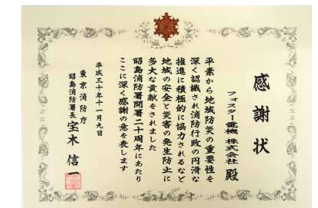 感謝状
フィスター電機 株式会社 殿
平素から地域防災の重要性を
深く認識され消防行政の円滑な
推進に積極的に協力されるなど
地域の安全と災害の発生防止に
多大な貢献をされました
昭島消防署開署二十周年にあたり
ここに深く感謝の意を表します
平成三十年十一月九日
東京消防庁
昭島消防署長 宝木 信一